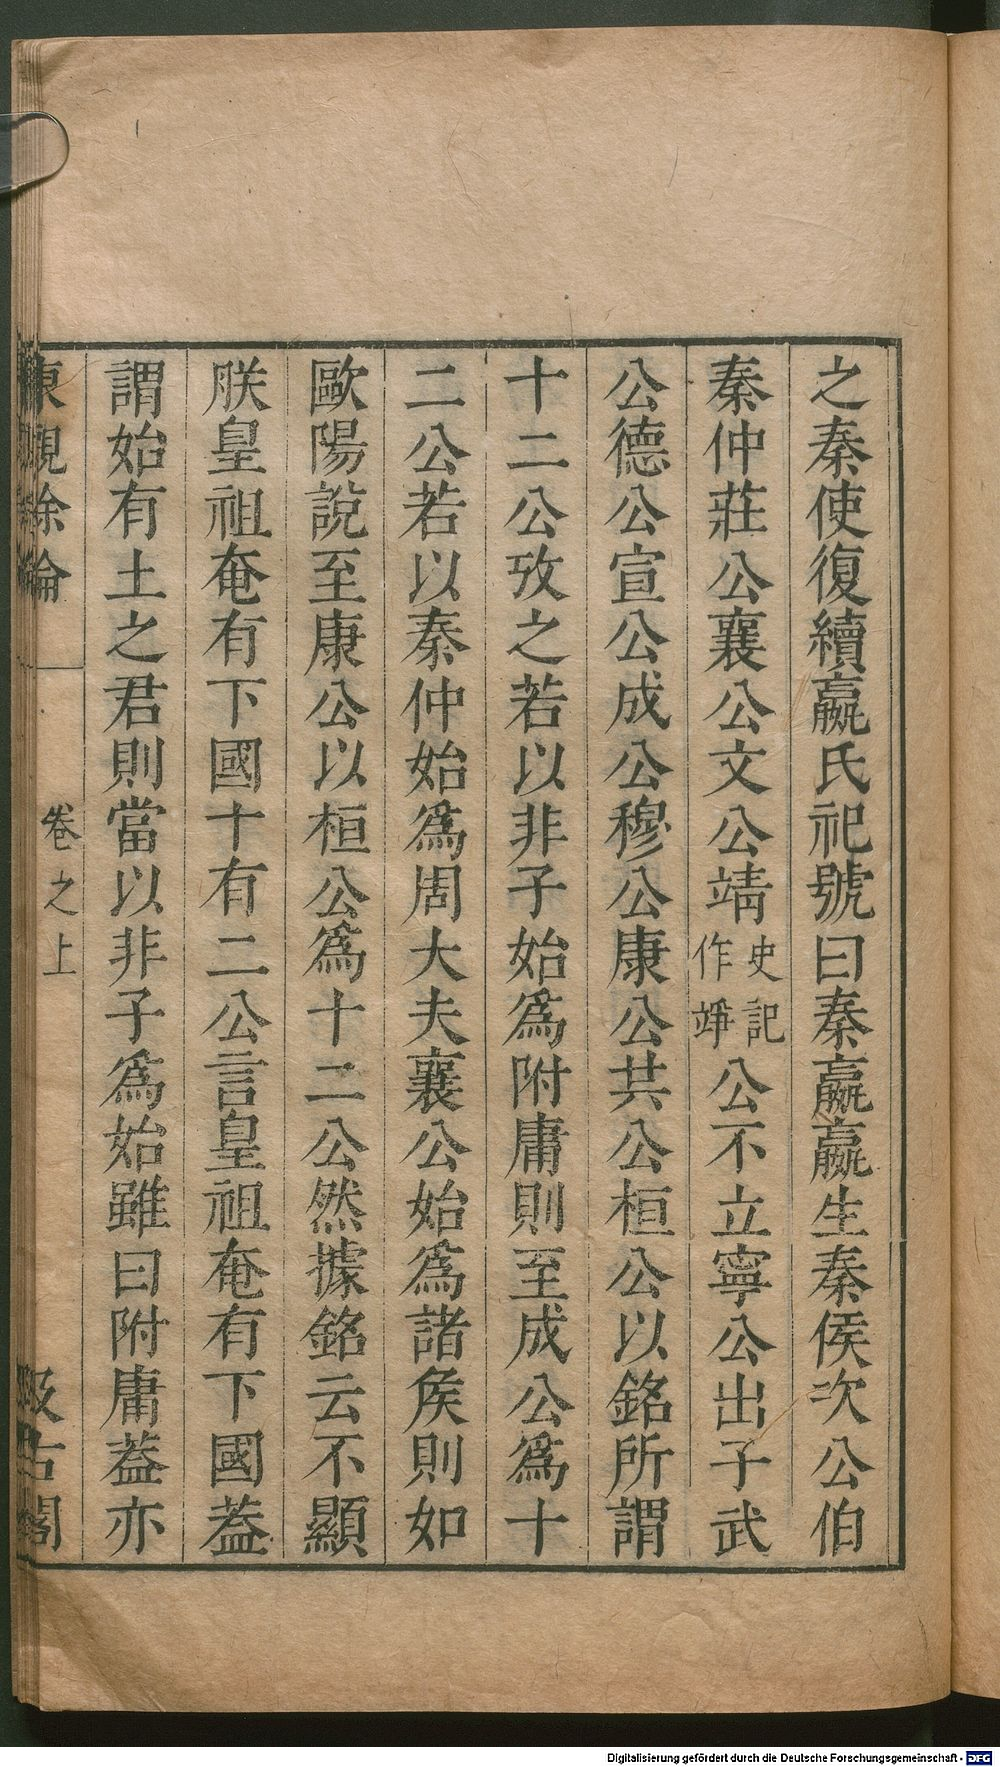 之秦使復續嬴氏祀號曰秦嬴嬴生秦侯次公伯
秦仲莊公襄公文公靖史記作竫公不立寧公出子武
公德公宣公成公穆公康公共公桓公以銘所謂
十二公攷之若以非子始爲附庸則至成公爲十
二公若以秦仲始爲周大夫襄公始爲諸矦則如
歐陽說至康公以桓公爲十二公然據銘云不顯
朕皇祖奄有下國十有二公言皇祖奄有下國葢
謂始有土之君則當以非子爲始雖曰附庸葢亦
東觀餘論 卷之上 汲古閣
Digitalisierung gefördert durch die Deutsche Forschungsgemeinschaft - DFG